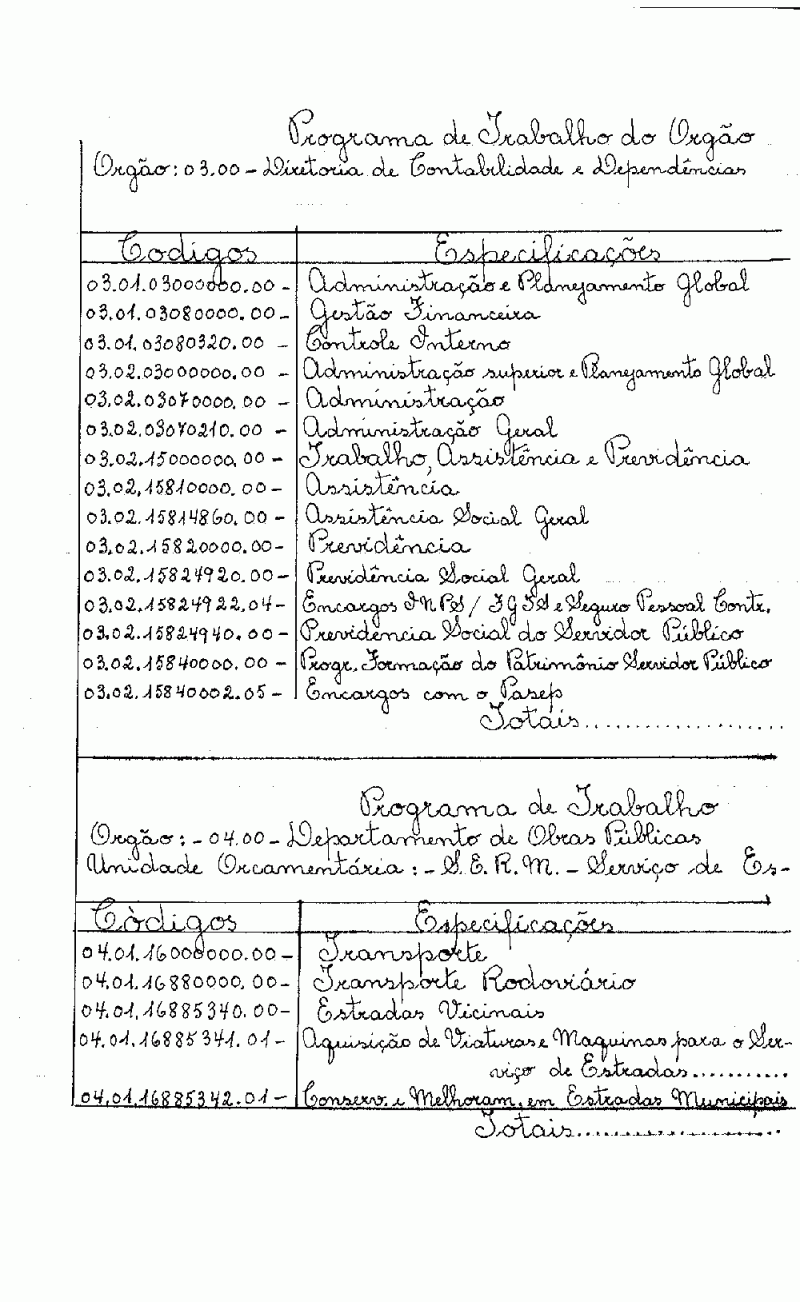 Programa de Trabalho do Orgão
Orgão: 03.00 - Diretoria de Contabilidade e Dependências
Codigos Especificações
03.01.03000000.00 - Administração e Planejamento Global
03.01.03080000.00 - Gestão Financeira
03.01.03080320.00 - Controle Interno
03.02.03000000.00 - Administração superior e Planejamento Global
03.02.03070000.00 - Administração
03.02.03070210.00 - Administração Geral
03.02.15000000.00 - Trabalho, Assistência e Previdência
03.02.15810000.00 - Assistência
03.02.15814860.00 - Assistência Social Geral
03.02.15820000.00 - Previdência
03.02.15824920.00 - Previdência Social Geral
03.02.15824922.04 - Encargos INPS / FGTS e Seguro Pessoal Contr.
03.02.15824940.00 - Previdência Social do Servidor Público
03.02.15840000.00 - Progr. Formação do Patrimônio Servidor Público
03.02.15840002.05 - Encargos com o Pasep
Totais....................
Programa de Trabalho
Orgão: - 04.00 - Departamento de Obras Públicas
Unidade Orcamentária: - S.E.R.M. - Serviço de Es-
Còdigos Especificações
04.01.16000000.00 - Transporte
04.01.16880000.00 - Transporte Rodoviário
04.01.16885340.00 - Estradas Vicinais
04.01.16885341.01 - Aquisição de Viaturas e Maquinas para o Ser-
viço de Estradas...........
04.01.16885342.01 - Conserv. e Melhoram. em Estradas Municipais
Totais....................